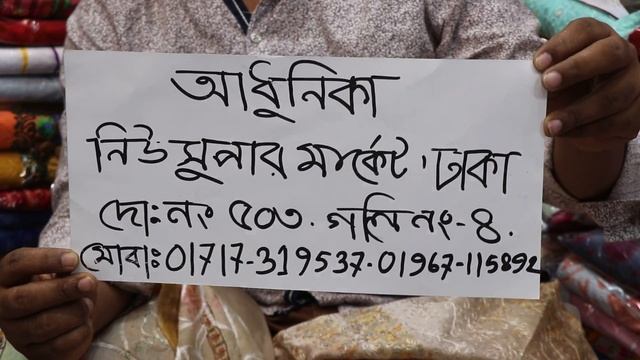 আধুনিকা
নিউ সুপার মার্কেট, ঢাকা
দো: নং ৫০৩. গলি নং-৪.
মোবা: 01717-319537-01967-115892